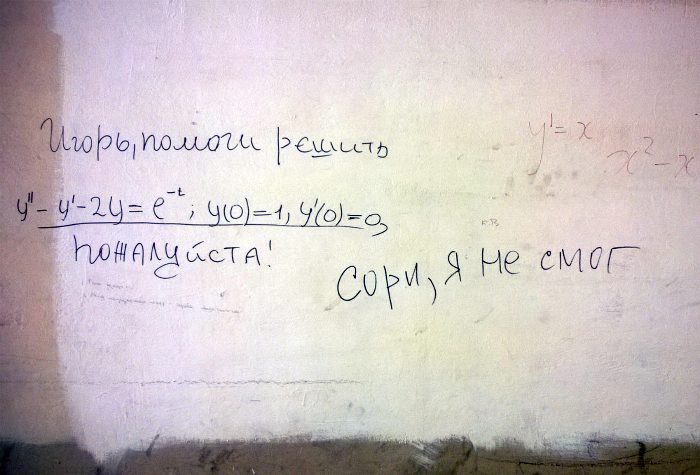 Игорь, помоги решить
y'' - y' - 2y = e⁻ᵗ; y(0)=1, y'(0)=0,
Пожалуйста!
Сори, я не смог
y' = x
x² - x